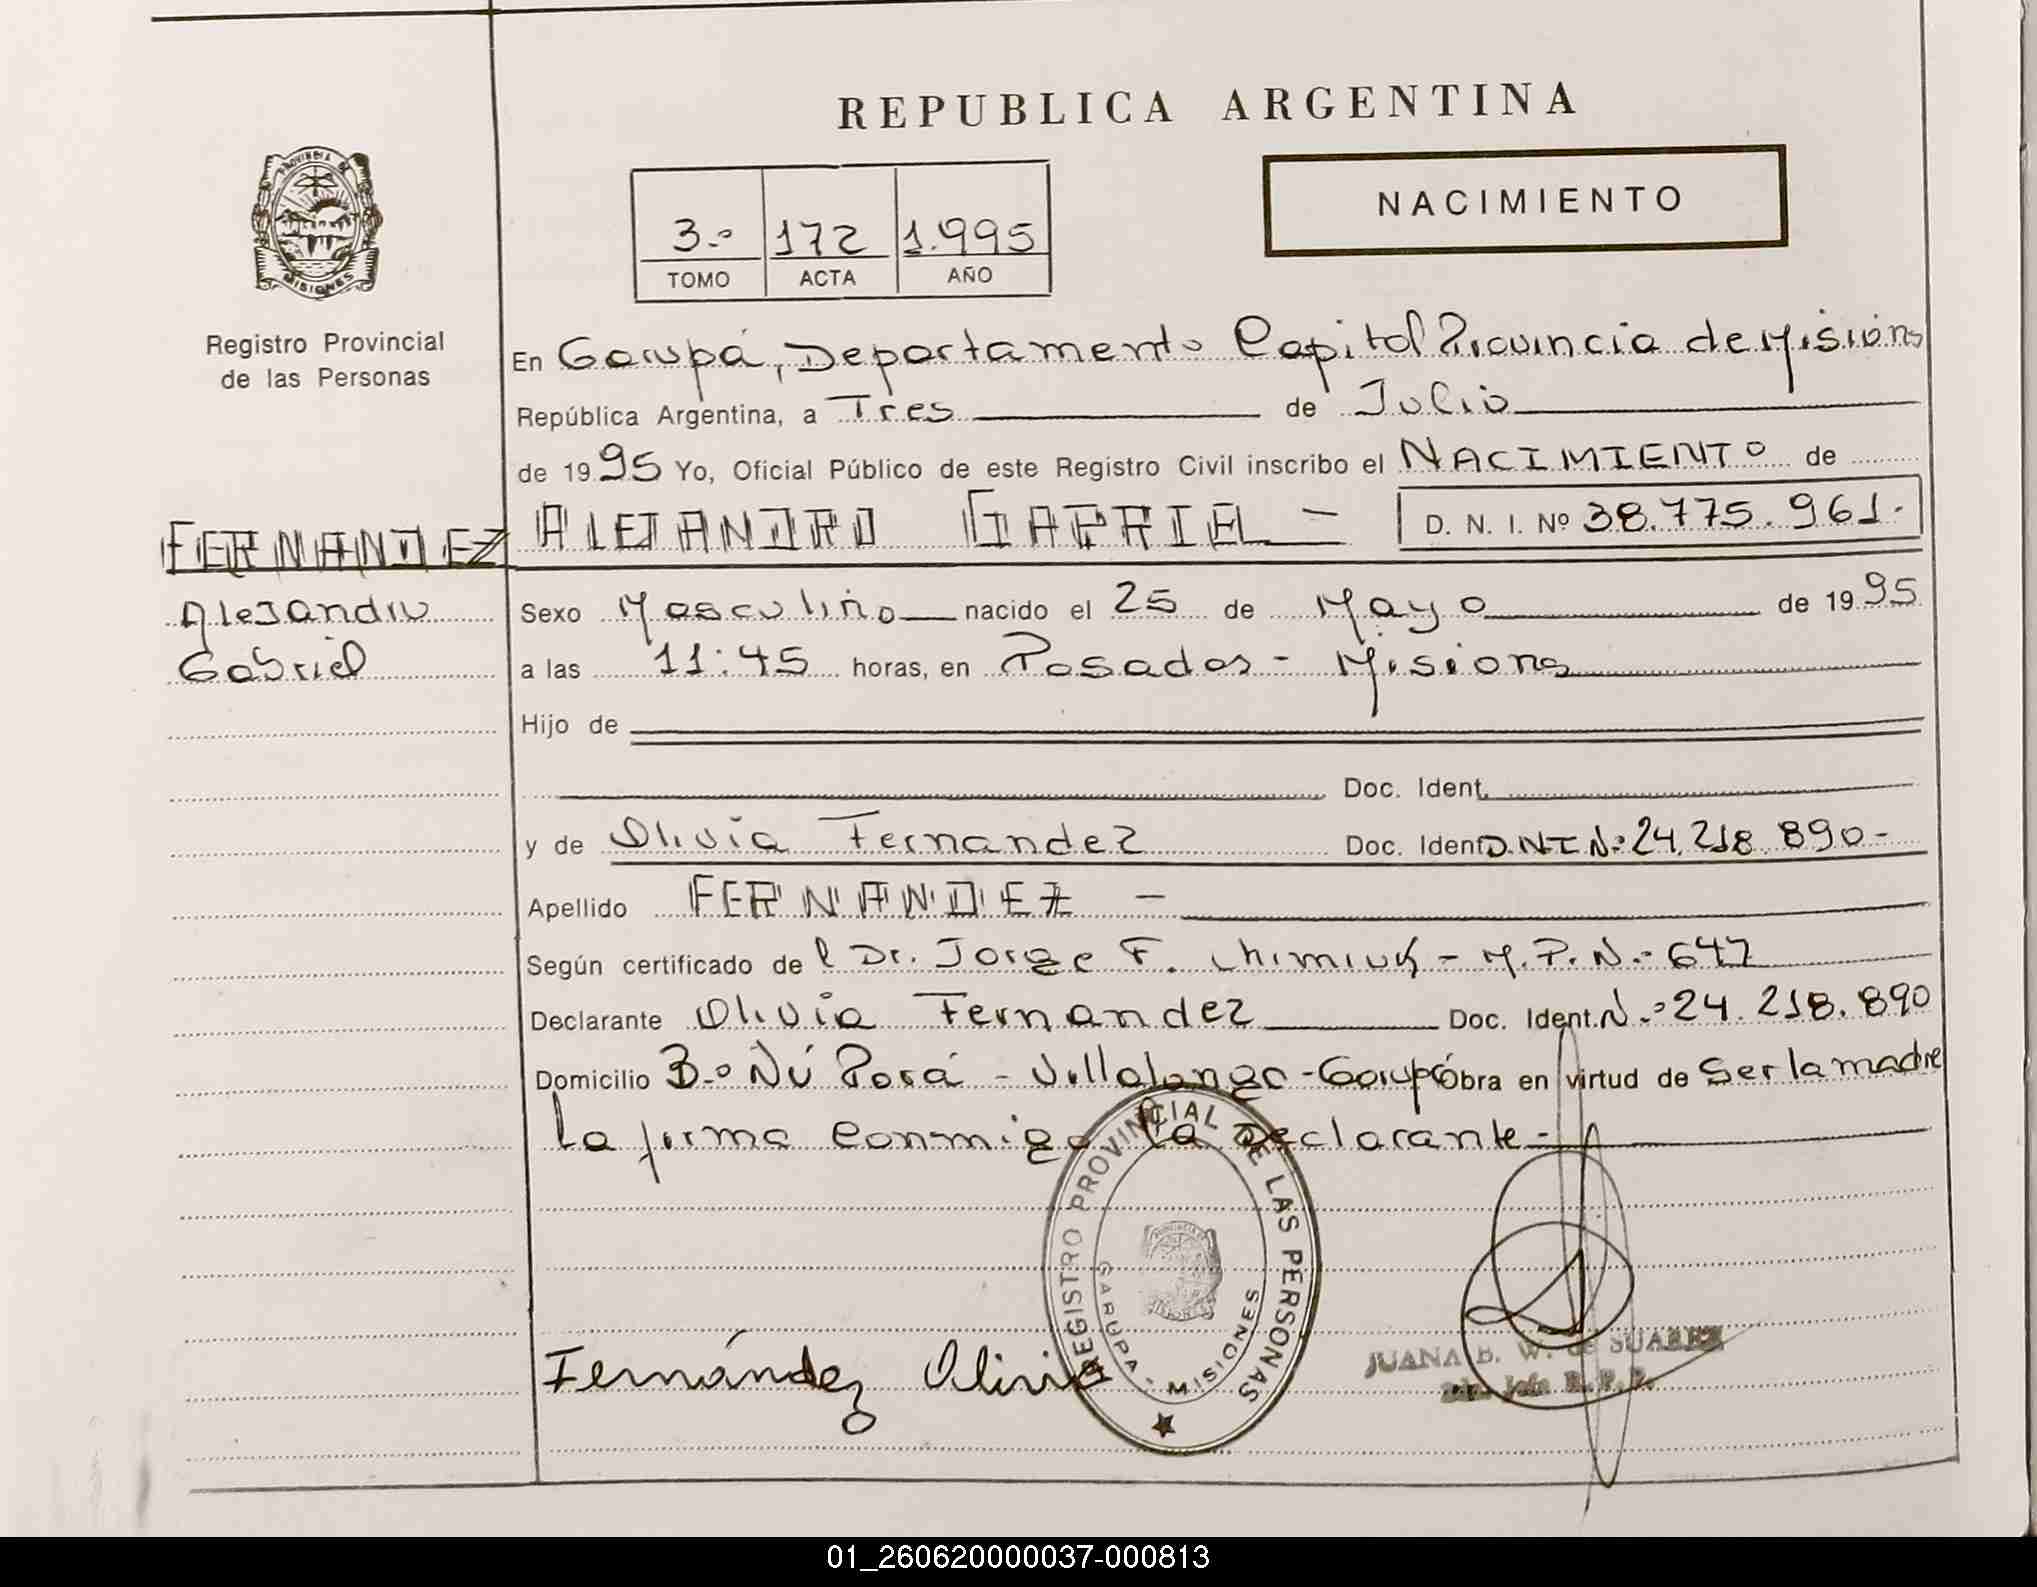 REPUBLICA ARGENTINA
NACIMIENTO
3.º 172 1.995
TOMO ACTA AÑO
PROVINCIA DE
MISIONES
Registro Provincial
de las Personas
En Garupá, Departamento Capital Provincia de Misiones
República Argentina, a Tres de Julio
de 1995 Yo, Oficial Público de este Registro Civil inscribo el NACIMIENTO de
FERNANDEZ ALEJANDRO GABRIEL = D. N. I. Nº 38.775.961.
Alejandro
Gabriel
Sexo Masculino nacido el 25 de Mayo de 1995
a las 11:45 horas, en Posadas - Misiones
Hijo de
Doc. Ident.
y de Olivia Fernandez Doc. Ident D.N.I. N.º 24.218.890-
Apellido FERNANDEZ -
Según certificado del Dr. Jorge F. Chimiuk - M.P.N.- 647
Declarante Olivia Fernandez Doc. Ident. N.º 24.218.890
Domicilio B.º Ñú Porá - Villalonga - Garupá obra en virtud de Ser la madre
La firma conmigo la Declarante -
REGISTRO PROVINCIAL DE LAS PERSONAS
GARUPA - MISIONES
Fernández Olivia
JUANA B. W. de SUAREZ
Jefa R. P. P.
01_260620000037-000813